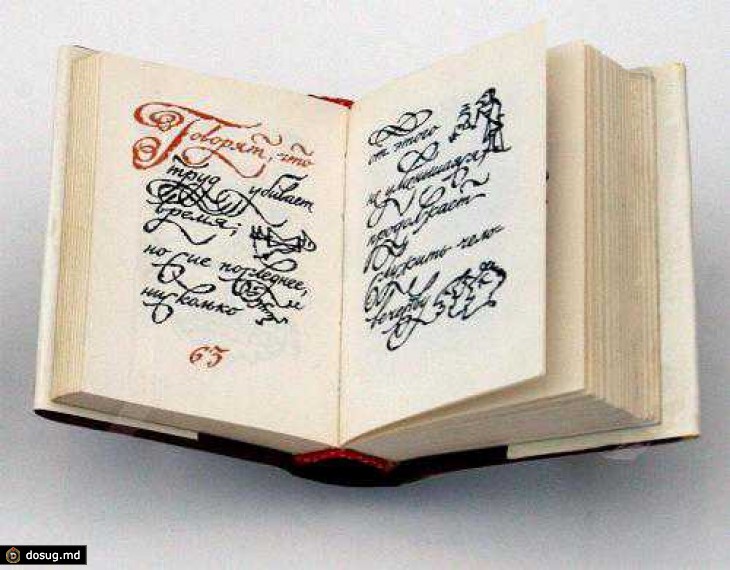 Говорят, что
труд убивает
время;
но сие последнее,
нисколько
63
от этого
не уменьшаяся,
продолжает
служить чело-
вечеству
dosug.md